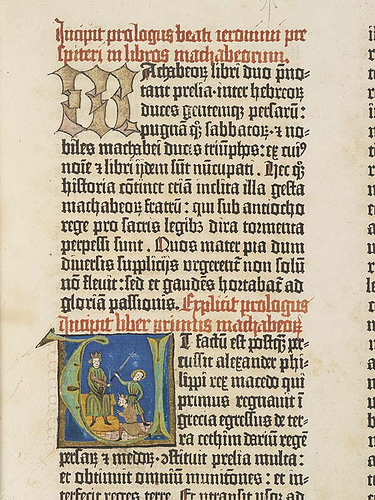 Incipit prologus beati ieronimi pre
sbiteri in libros machabeorum.
Machabeoꝝ libri duo p̄no-
tant prelia· inter hebreoꝝ
duces gentemqꝫ persarū:
pugnā qꝫ sabbatoꝝ· ⁊ no-
biles machabei duc̄s triūphos: ex cuiꝰ
noīe ⁊ libri ijdem sūt nūcupati. Hec qꝫ
historia cōtinet etiā inclita illa gesta
machabeoꝝ fratrū: qui sub antiocho
rege pro sacris legibꝫ dira tormenta
perpessi sunt. Quos mater pia dum
diuersis supplicijs urgerent̄ non solū
nō fleuit: sed et gaudēs hortabat̄ ad
gloriā passionis. Explicit prologus
Incipit liber primus machabeoꝝ
Et factū est postqꝫ per-
cussit alexander phi-
lippi rex macedo qui
primus regnauit ī
grecia egressus de ter-
ra cethim dariū regē
persaꝝ ⁊ medoꝝ· ꝯstituit prelia multa:
et obtinuit omniū munitiones: et in-
terfecit reges terre. Et transijt usqꝫ ad